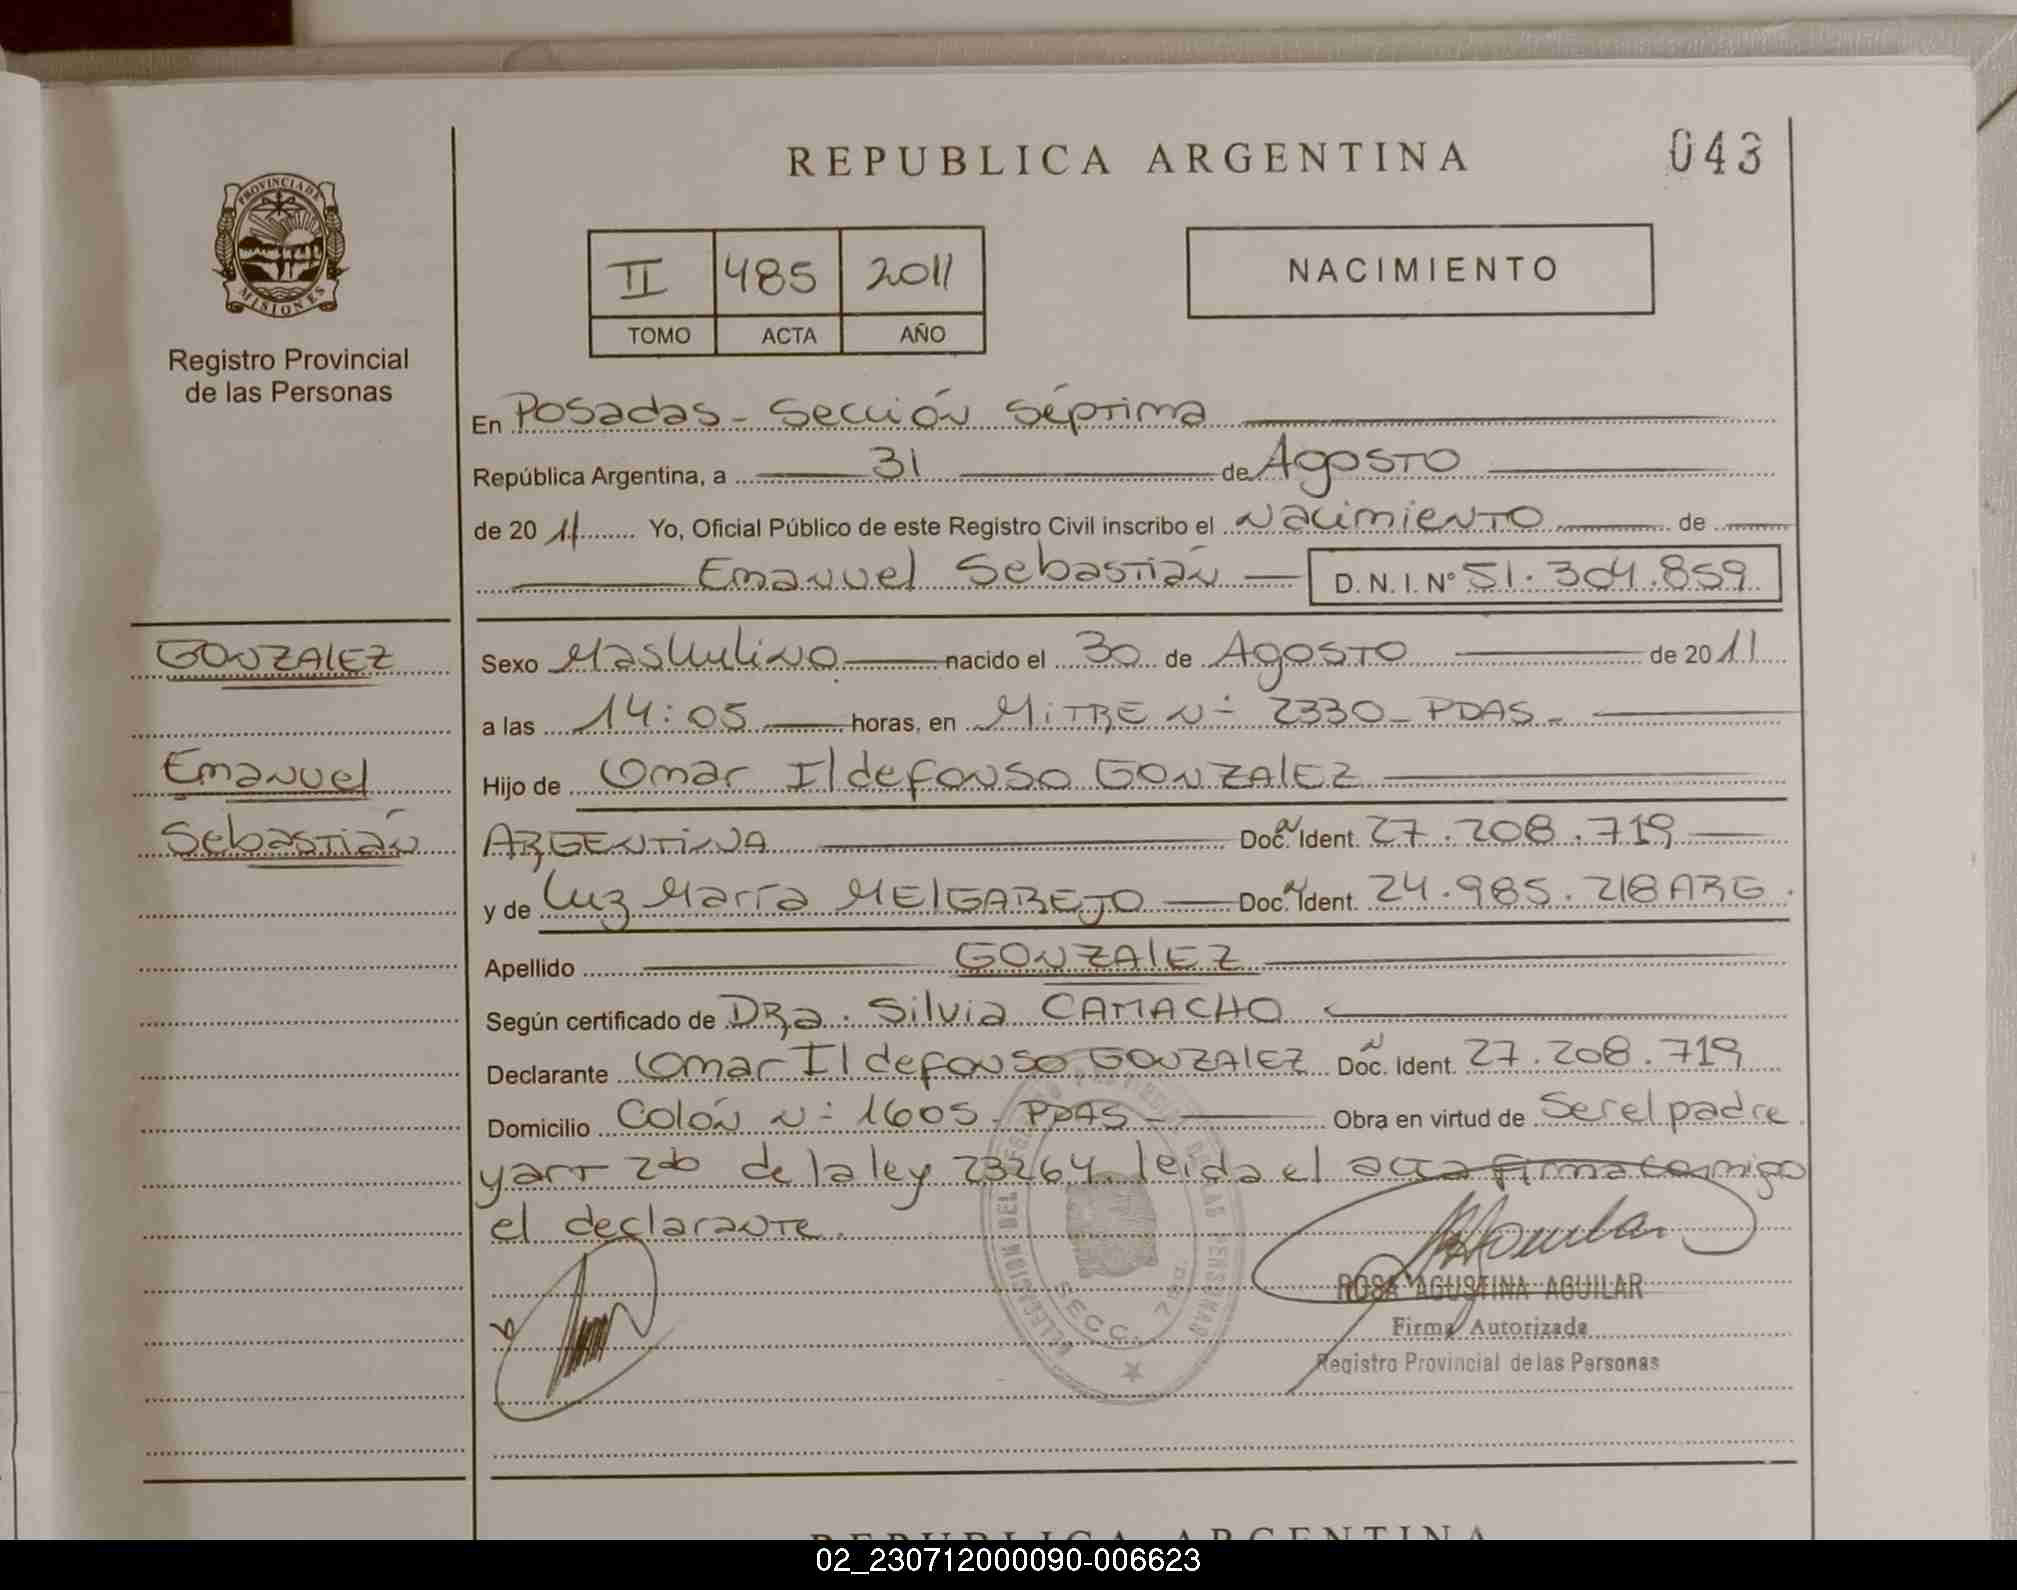 REPUBLICA ARGENTINA
043
PROVINCIA DE
MISIONES
Registro Provincial
de las Personas
II 485 2011
TOMO ACTA AÑO
NACIMIENTO
En Posadas - Sección Séptima
República Argentina, a 31 de Agosto
de 2011 Yo, Oficial Público de este Registro Civil inscribo el Nacimiento de
Emanuel Sebastián D. N. I. N° 51.304.859
GONZALEZ
Emanuel
Sebastián
Sexo Maskulino nacido el 30 de Agosto de 2011
a las 14:05 horas, en MITRE N- 2330- PDAS-
Hijo de Omar Ildefonso GONZALEZ
ARGENTINA Doc. Ident. 27.208.719
y de Luz María MELGAREJO Doc. Ident. 24.985.218 ARG.
Apellido GONZALEZ
Según certificado de DRa. Silvia CAMACHO
Declarante Omar Ildefonso GONZALEZ Doc. Ident. 27.208.719
Domicilio Colón N- 1605- PDAS- Obra en virtud de Ser el padre
y art 2do de la ley 23264. leida el acta firma conmigo
el declarante.
SECC. 7ma
ROSA AGUSTINA AGUILAR
Firma Autorizada
Registro Provincial de las Personas
REPUBLICA ARGENTINA
02_230712000090-006623